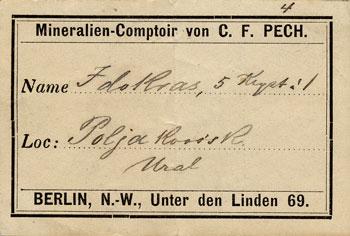 4
Mineralien-Comptoir von C. F. PECH.
Name Idokras, 5 Kryst: 1
Loc: Poljakowsk.
Ural
BERLIN, N.-W., Unter den Linden 69.